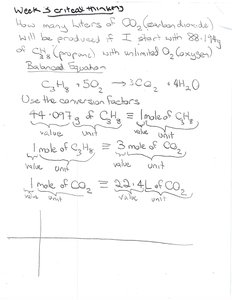 Week 3 critical thinking
How many liters of CO₂ (carbondioxide)
will be produced if I start with 88.194g
of C₃H₈ (propane) with unlimited O₂ (oxygen)
Balanced Equation
C₃H₈ + 5O₂ → 3CO₂ + 4H₂O
Use the conversion factors
44.097g of C₃H₈ ≡ 1 mole of C₃H₈
value unit value unit
1 mole of C₃H₈ ≡ 3 mole of CO₂
value unit value unit
1 mole of CO₂ ≡ 22.4 L of CO₂
value unit value unit